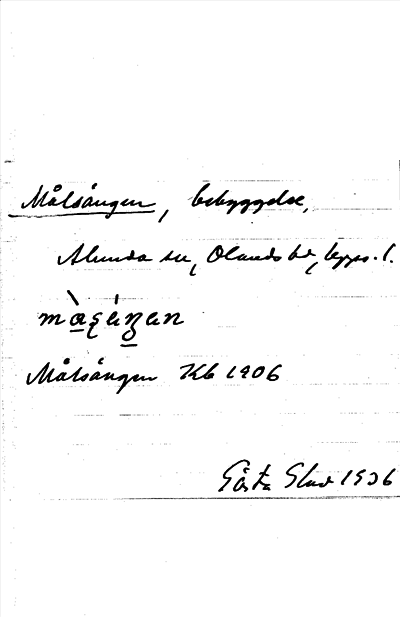 Målsången, bebyggelse,
Alunda sn, Olands hd, Upps. l.
Målsången Kb 1906
Gösta 1936